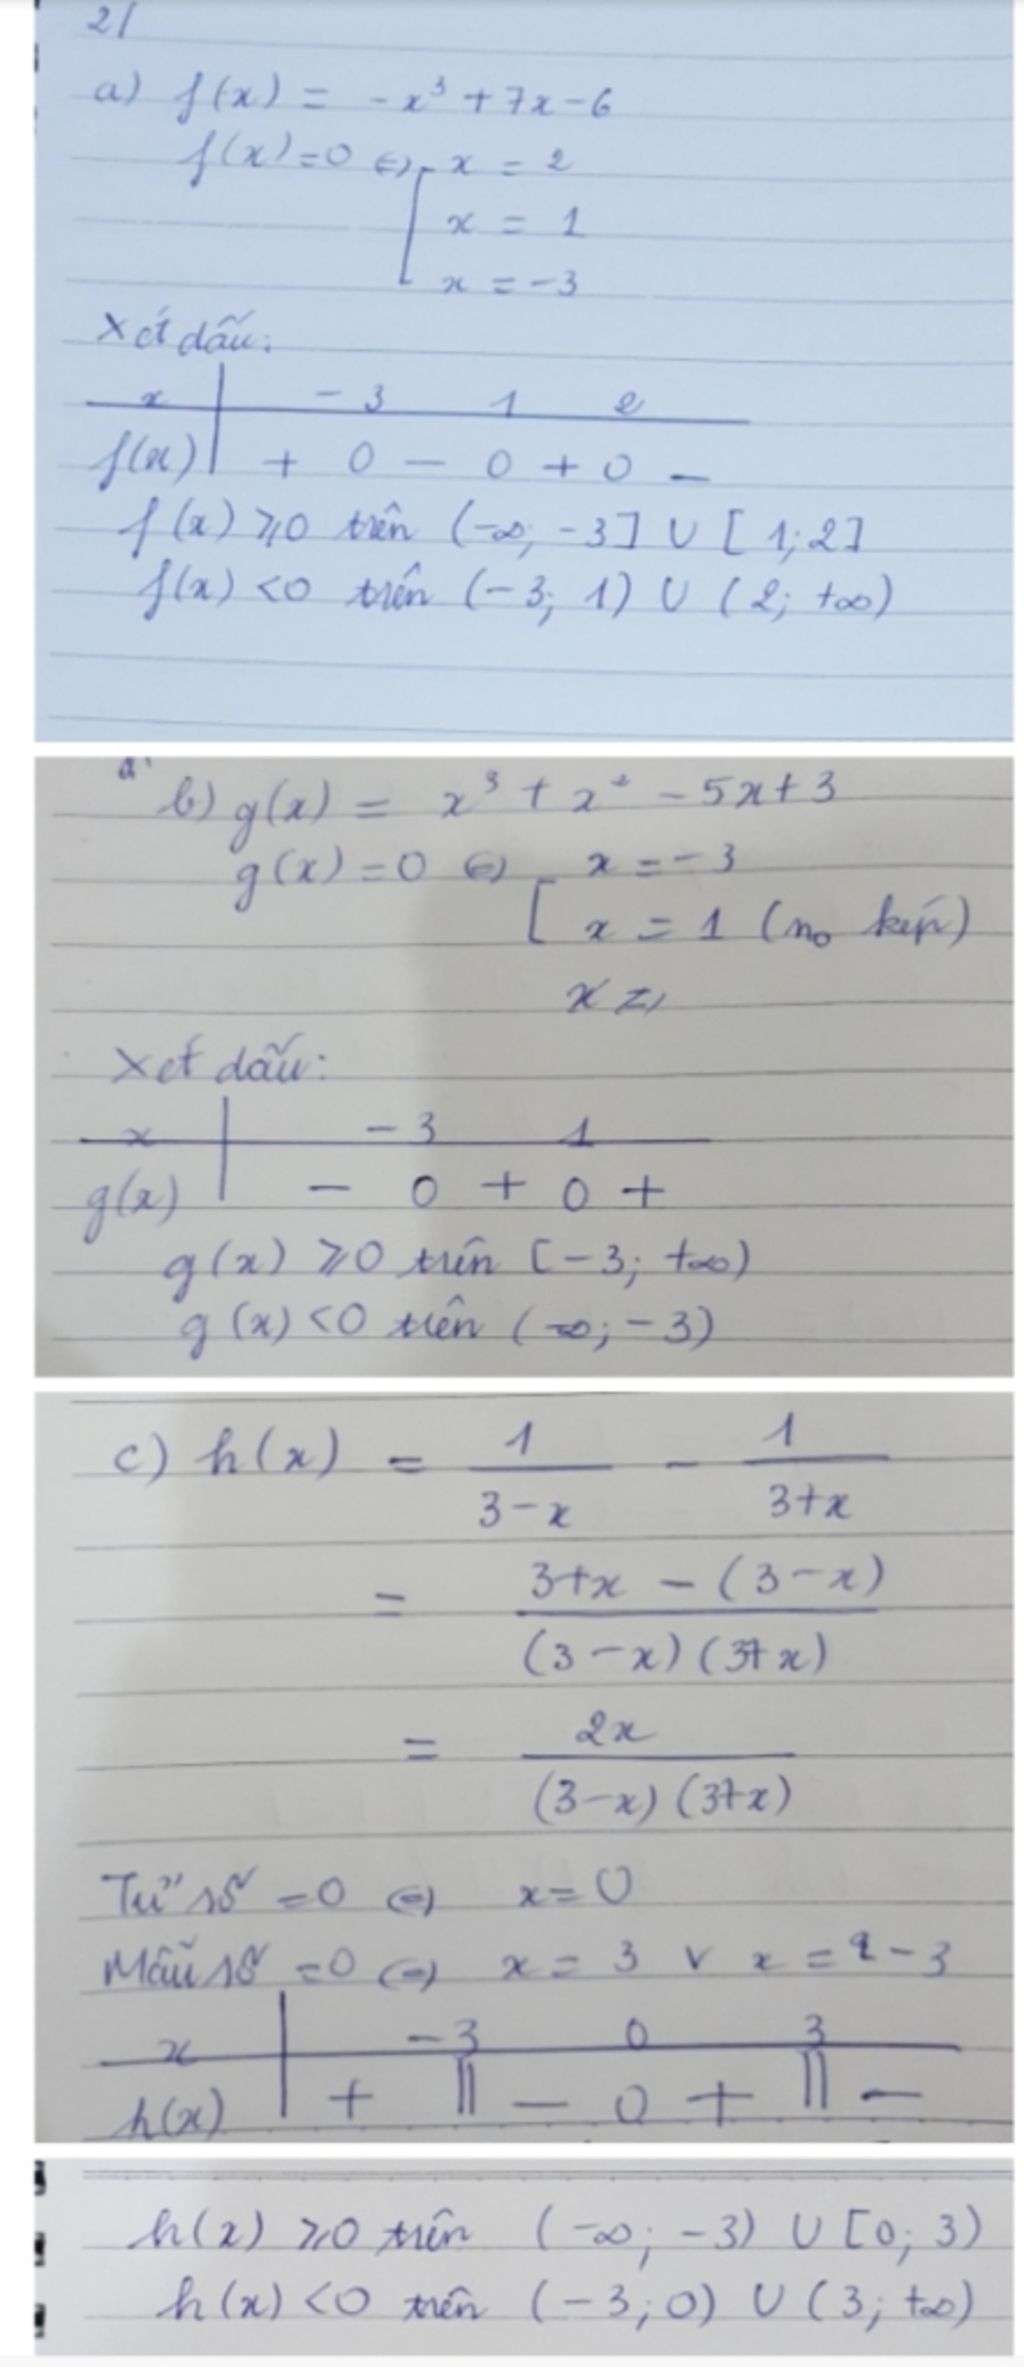 2/
a) f(x) = -x³ + 7x - 6
f(x) = 0 ⇔ [ x = 2
x = 1
x = -3
Xét dấu:
x | -3 1 2
f(x) | + 0 - 0 + 0 -
f(x) ⩾ 0 trên (-∞; -3] ∪ [1; 2]
f(x) < 0 trên (-3; 1) ∪ (2; +∞)
b) g(x) = x³ + x² - 5x + 3
g(x) = 0 ⇔ [ x = -3
x = 1 (no kép)
Xét dấu:
x | -3 1
g(x) | - 0 + 0 +
g(x) ⩾ 0 trên [-3; +∞)
g(x) < 0 trên (-∞; -3)
c) h(x) = 1/(3-x) - 1/(3+x)
= (3+x - (3-x))/((3-x)(3+x))
= 2x/((3-x)(3+x))
Tử số = 0 ⇔ x = 0
Mẫu số = 0 ⇔ x = 3 v x = -3
x | -3 0 3
h(x) | + || - 0 + || -
h(x) ⩾ 0 trên (-∞; -3) ∪ [0; 3)
h(x) < 0 trên (-3; 0) ∪ (3; +∞)